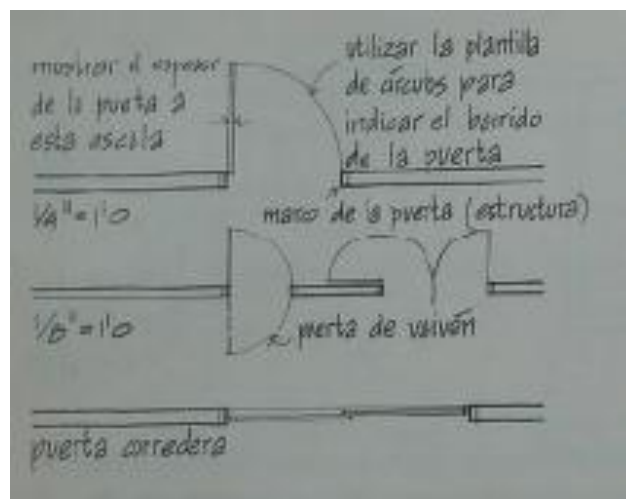 mostrar el espesor
de la puerta a
esta escala
utilizar la plantilla
de círculos para
indicar el barrido
de la puerta
1/4" = 1'0
marco de la puerta (estructura)
1/8" = 1'0
puerta de vaivén
puerta corredera